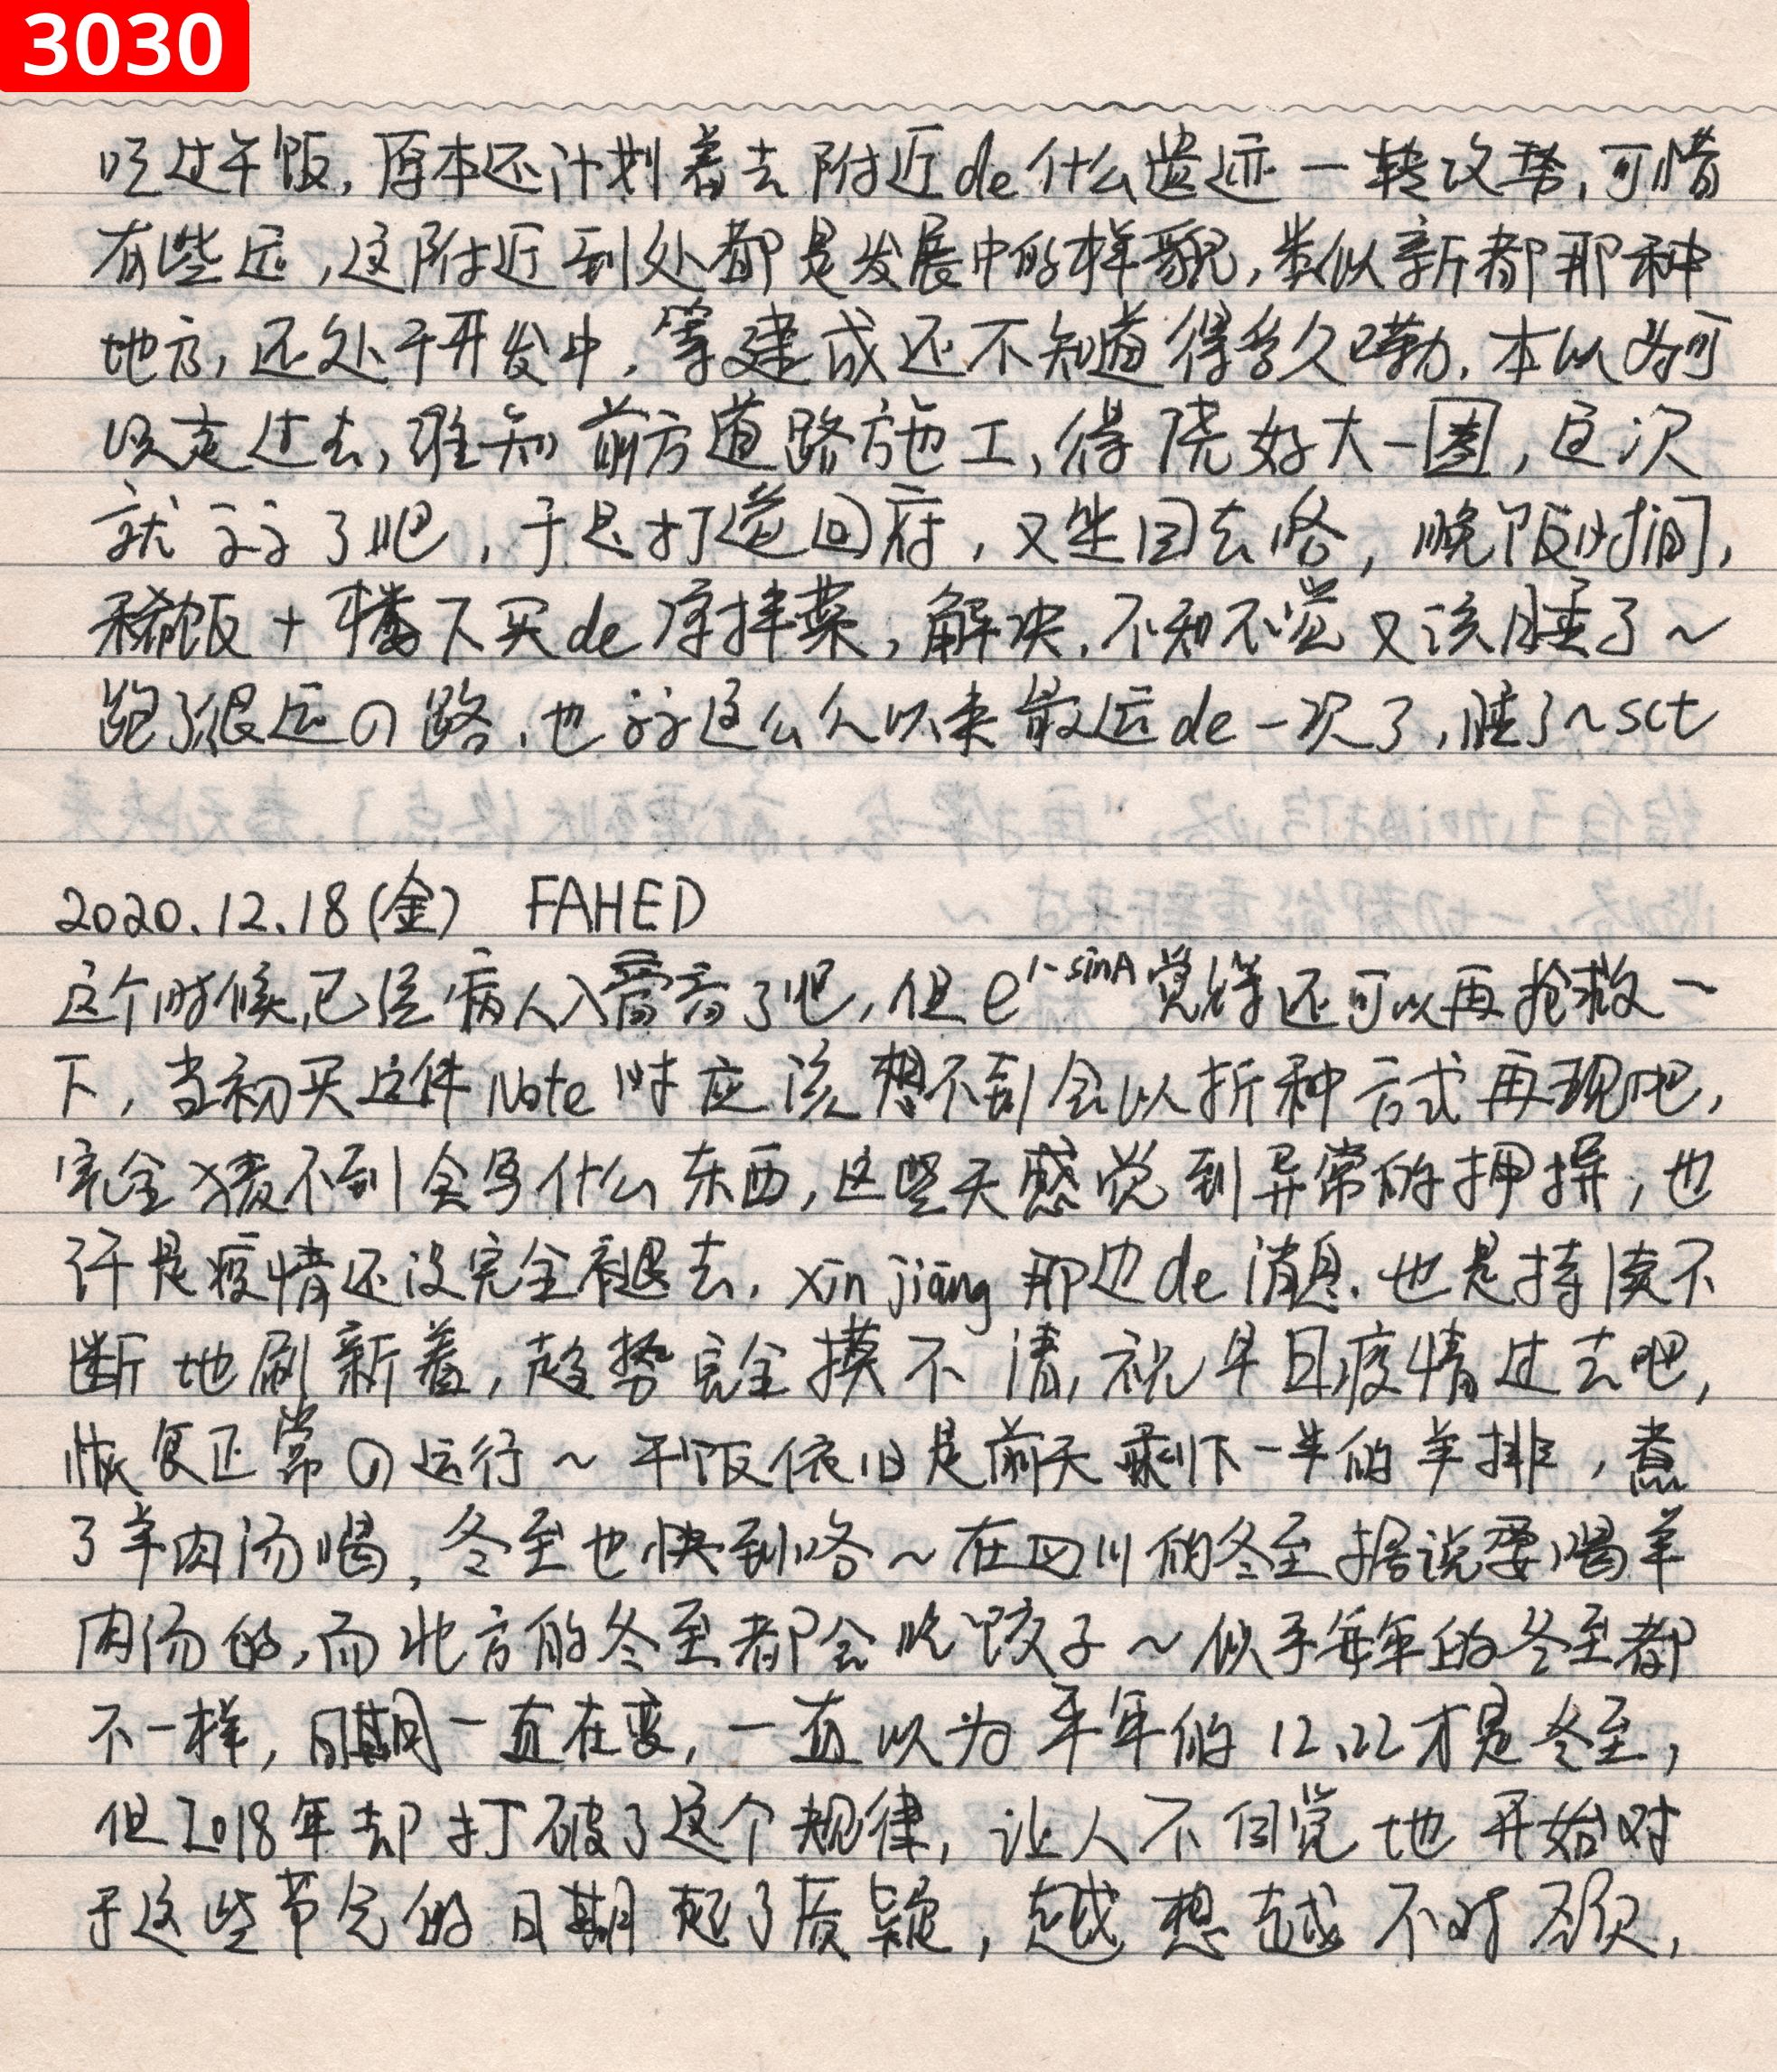 3030
吃过午饭,原本还计划着去附近de什么遗迹一转攻势,可惜
有些远,这附近到处都是发展中的样貌,类似新都那种
地方,还处于开发中,等建成还不知道得多久勒.本以为可
以走过去,谁知前方道路施工,得绕好大一圈,这次
就算了吧,于是打道回府,又坐回去咯,晚饭时间,
稀饭+楼下买de凉拌菜,解决.不知不觉又该睡了~
跑了很远の路,也算这么久以来最远de一次了,睡了~sct
2020.12.18(金) FAHED
这个时候,已经病入膏肓了吧,但e^1-sinA觉得还可以再抢救一
下,当初买这件Note时应该想不到会以折种方式再现吧,
完全猜不到会写什么东西,这些天感觉到异常的押择,也
许是疫情还没完全褪去.xinjiang那边de消息.也是持续不
断地刷新着,趋势完全摸不清,祝早日疫情过去吧,
恢复正常の运行~午饭依旧是前天剩下一半的羊排,煮
了羊肉汤喝,冬至也快到咯~在四川的冬至据说要喝羊
肉汤的,而北方的冬至都会吃饺子~似乎每年的冬至都
不一样,日期一直在变,一直以为平年的12.22才是冬至,
但2018年却打破了这个规律,让人不自觉地开始对
于这些节气的日期起了质疑,越想越不对劲,